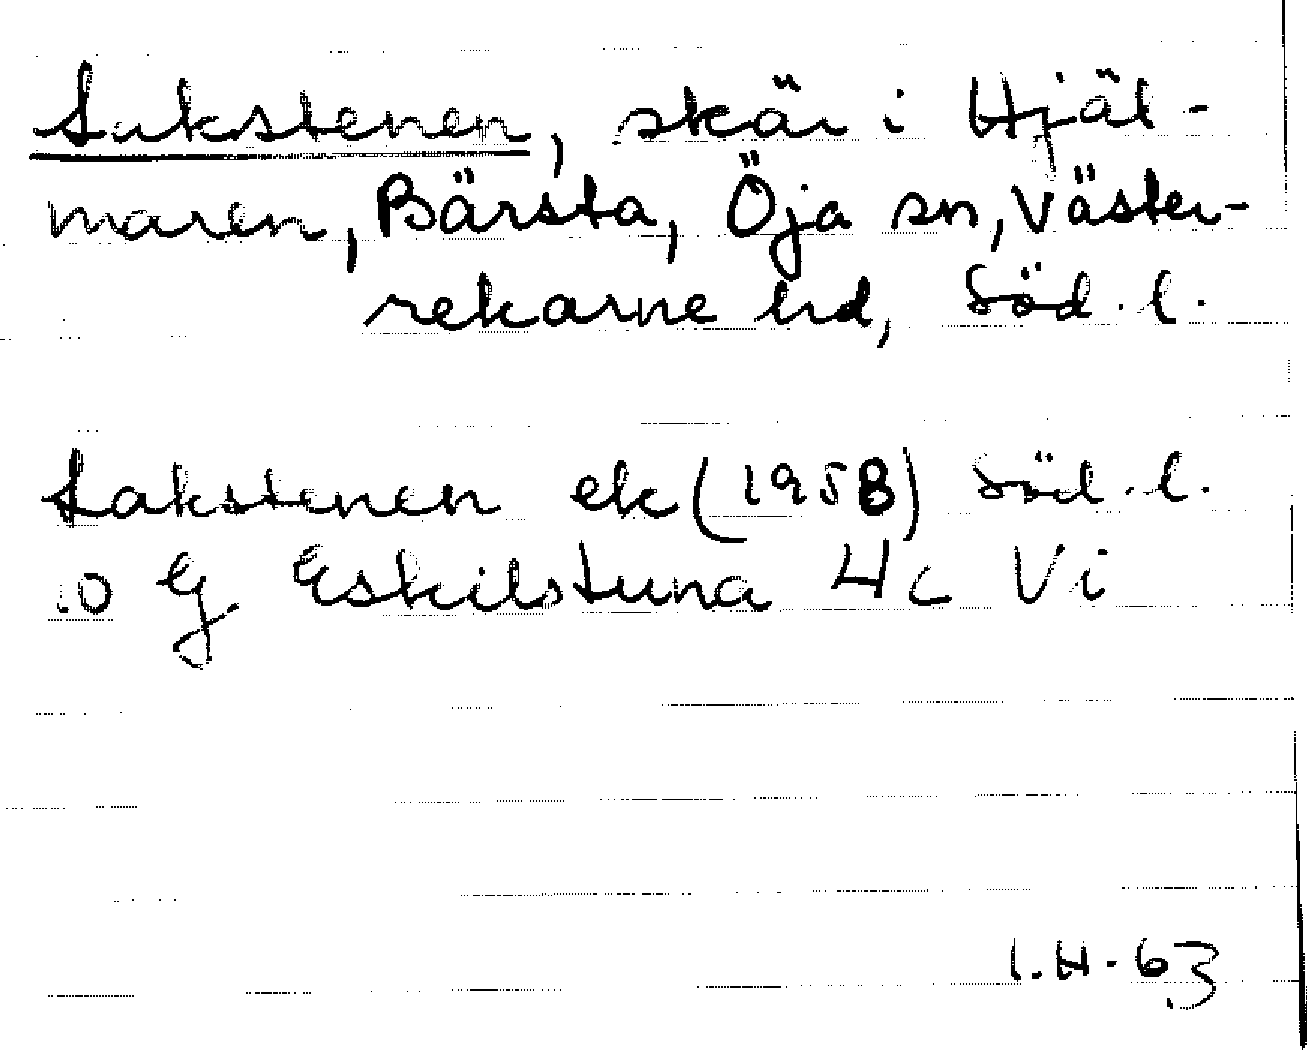 Lakstenen, skär i Hjäl-
maren, Bärsta, Öja sn, Väster-
rekarne hd, Söd. l.
Lakstenen ek (1958) Söd. l.
10 G Eskilstuna 4c Vi
I.H. 63